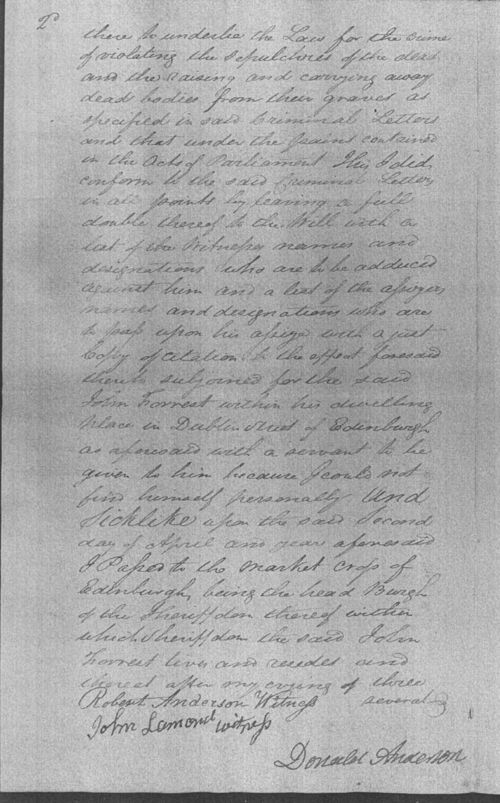 2d
there to underlie the Law for the crime
of violating the Sepulchres of the dead
and the raising and carrying away
dead bodies from their graves as
specified in said Criminal Letters
and that under the pains contained
in the Acts of Parliament This I did,
conform to the said Criminal Letters
in all points by leaving a full
double thereof to the Will with a
list of the Witnesses names and
designations who are to be adduced
against him and a list of the assyzers
names and designations who are
to pass upon his assyze with a just
Copy of Citation to the effect foresaid
thereto subjoined for the said
John Forrest within his dwelling
place in Dublin Street of Edinburgh
as aforesaid with a servant to be
given to him because I could not
find himself personally And
Sicklike upon the said Second
day of April and year aforesaid
I Passed to the market cross of
Edinburgh, being the head Burgh
of the Sheriffdom thereof within
which Sheriffdom the said John
Forrest lives and resides and
thereat after my crying of three
Robert Anderson Witness several
John Lamond witness
Donald Anderson